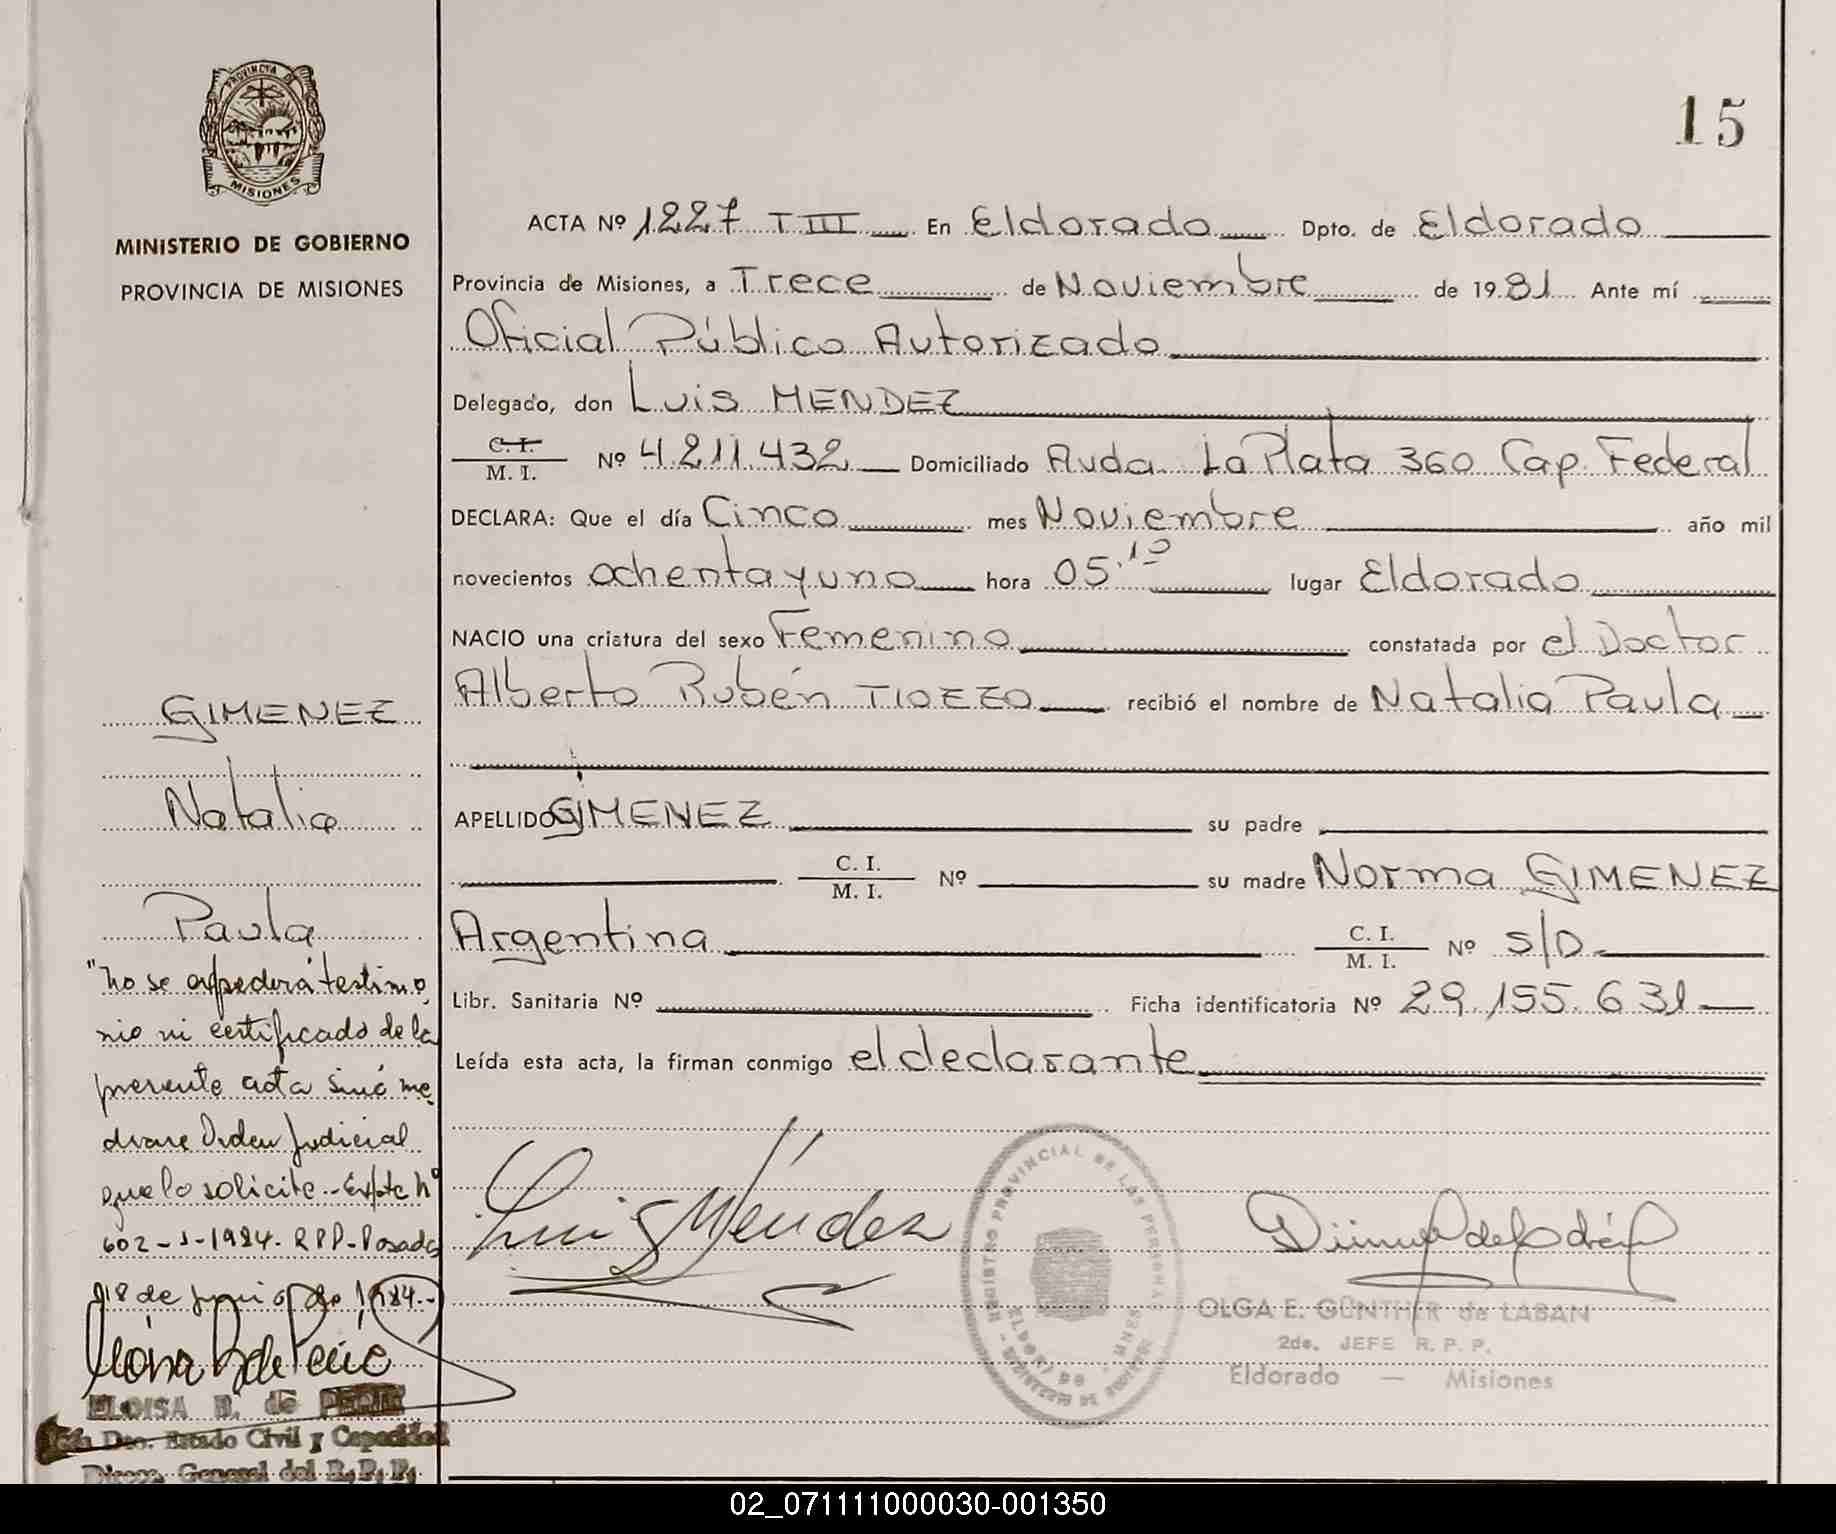 15
PROVINCIA DE
MISIONES
MINISTERIO DE GOBIERNO
PROVINCIA DE MISIONES
ACTA Nº 1227 T III En Eldorado Dpto. de Eldorado
Provincia de Misiones, a Trece de Noviembre de 1981 Ante mí
Oficial Público Autorizado
Delegado, don Luis MENDEZ
C. I.
M. I. Nº 4.211.432 Domiciliado Avda. La Plata 360 Cap. Federal
DECLARA: Que el día Cinco mes Noviembre año mil
novecientos ochenta y uno hora 05.10 lugar Eldorado
NACIO una criatura del sexo Femenino constatada por el Doctor
Alberto Rubén TIOZZO recibió el nombre de Natalia Paula
APELLIDO GIMENEZ su padre
C. I.
M. I. Nº su madre Norma GIMENEZ
Argentina C. I.
M. I. Nº S/D
Libr. Sanitaria Nº Ficha identificatoria Nº 29.155.631
Leída esta acta, la firman conmigo el declarante
Luis Méndez
GIMENEZ
Natalia
Paula
"No se expederá testimo
nio ni certificado de la
presente acta sinó me
diare Orden Judicial
que lo solicite.- Expte Nº
602-J-1984. RPP-Posadas
18 de junio de 1984.-
ELOISA B. de
Dto. Estado Civil y Capacidad
Direcc. General del R. P. P.
REGISTRO PROVINCIAL DE LAS PERSONAS
OLGA E. GÜNTHER de LABAN
2do. JEFE R. P. P.
Eldorado — Misiones
02_071111000030-001350